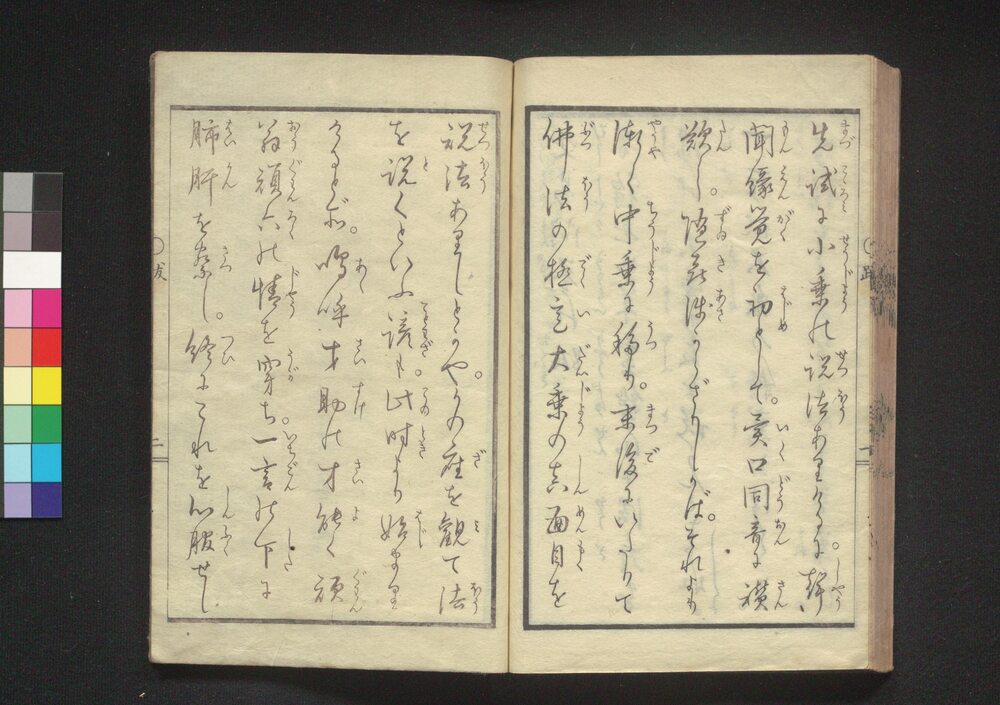 先試に小乗の説法ありけるに。声
聞縁覚を初として。異口同音に讃
歎し。随喜浅からざりしかば。それより
漸く中乗に移り。末後にいたりて
佛法の極意大乗の真面目を
説法ありしとかや。かの座を観て法
を説くといふ諺も此時より始まり
けるとぞ。嗚呼才助の才能く頑
翁頑六の情を穿ち。一言の下に
肺肝を察し。終にこれを心服せし